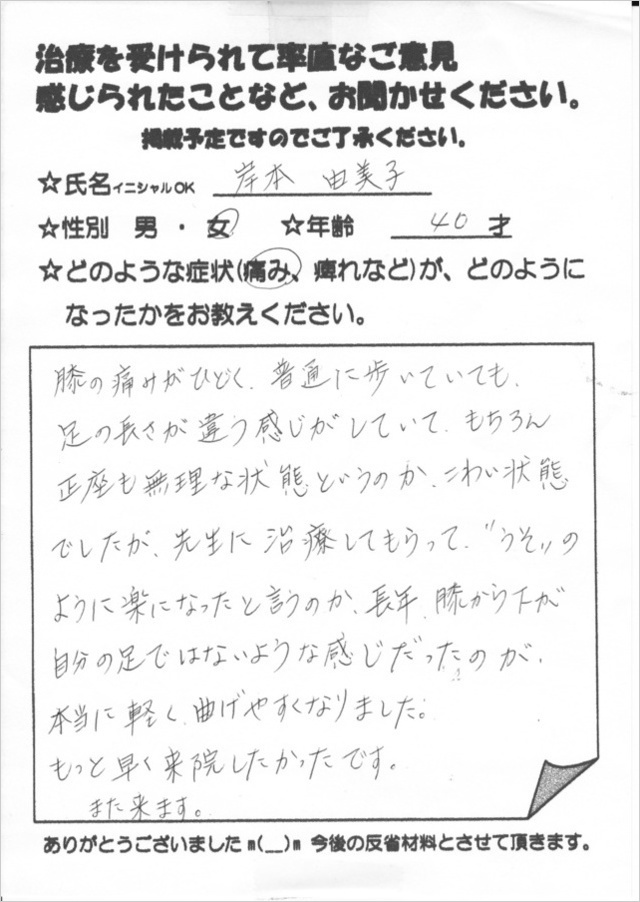 治療を受けられて率直なご意見
感じられたことなど、お聞かせください。
掲載予定ですのでご了承ください。
☆氏名イニシャルOK 岸本 由美子
☆性別 男 ・ 女 ☆年齢 40 才
☆どのような症状(痛み、痺れなど)が、どのように
なったかをお教えください。
膝の痛みがひどく、普通に歩いていても、
足の長さが違う感じがしていて、もちろん
正座も無理な状態というのか、こわい状態
でしたが、先生に治療してもらって、"うそ"の
ように楽になったと言うのか、長年、膝から下が
自分の足ではないような感じだったのが、
本当に軽く、曲げやすくなりました。
もっと早く来院したかったです。
また来ます。
ありがとうございました m(__)m 今後の反省材料とさせて頂きます。